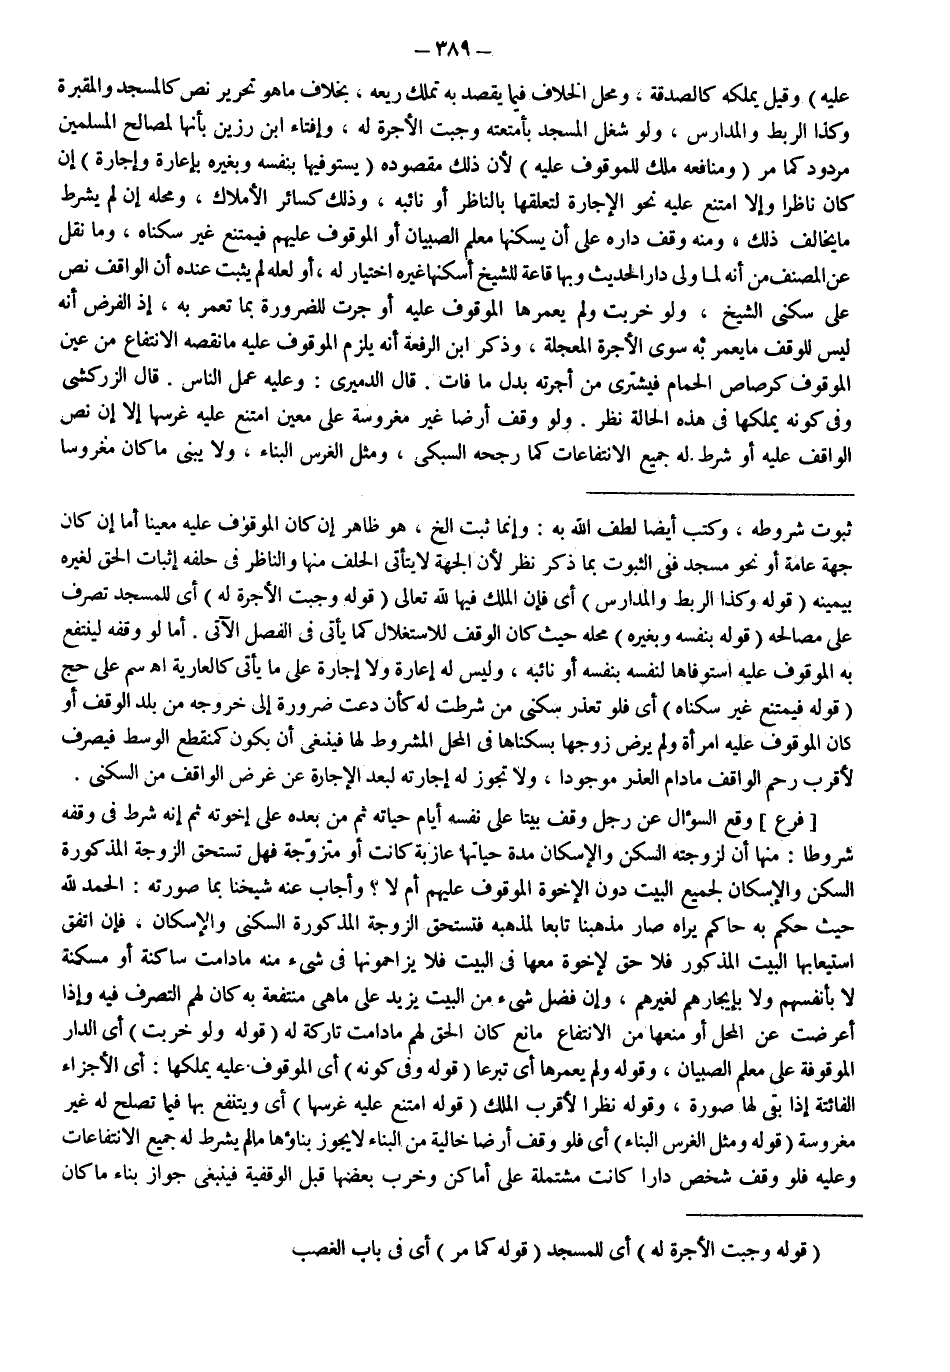 — ٣٨٩ —
عليه ) وقيل يملكه كالصدقة ، ومحل الخلاف فيما يقصد به تملك ريعه ، بخلاف ماهو تحرير نص كالمسجد والمقبرة
وكذا الربط والمدارس ، ولو شغل المسجد بأمتعته وجبت الأجرة له ، وإفتاء ابن رزين بأنها لمصالح المسلمين
مردود كما مر ( ومنافعه ملك للموقوف عليه ) لأن ذلك مقصوده ( يستوفيها بنفسه وبغيره بإعارة وإجارة ) إن
كان ناظرا وإلا امتنع عليه نحو الإجارة لتعلقها بالناظر أو نائبه ، وذلك كسائر الأملاك ، ومحله إن لم يشرط
مايخالف ذلك ، ومنه وقف داره على أن يسكنها معلم الصبيان أو الموقوف عليهم فيمتنع غير سكناه ، وما نقل
عن المصنف من أنه لما ولى دار الحديث وبها قاعة للشيخ أسكنها غيره اختيار له ، أو لعله لم يثبت عنده أن الواقف نص
على سكنى الشيخ ، ولو خربت ولم يعمرها الموقوف عليه أو جرت للضرورة بما تعمر به ، إذ الفرض أنه
ليس للوقف مايعمر به سوى الأجرة المعجلة ، وذكر ابن الرفعة أنه يلزم الموقوف عليه مانقصه الانتفاع من عين
الموقوف كرصاص الحمام فيشترى من أجرته بدل ما فات . قال الدميرى : وعليه عمل الناس . قال الزركشى
وفى كونه يملكها فى هذه الحالة نظر . ولو وقف أرضا غير مغروسة على معين امتنع عليه غرسها إلا إن نص
الواقف عليه أو شرط له جميع الانتفاعات كما رجحه السبكى ، ومثل الغرس البناء ، ولا يبنى ماكان مغروسا
ثبوت شروطه ، وكتب أيضا لطف الله به : وإنما ثبت الخ ، هو ظاهر إن كان الموقوف عليه معينا أما إن كان
جهة عامة أو نحو مسجد ففى الثبوت بما ذكر نظر لأن الجهة لايتأتى الحلف منها والناظر فى حلفه إثبات الحق لغيره
بيمينه ( قوله وكذا الربط والمدارس ) أى فإن الملك فيها لله تعالى ( قوله وجبت الأجرة له ) أى للمسجد تصرف
على مصالحه ( قوله بنفسه وبغيره ) محله حيث كان الوقف للاستغلال كما يأتى فى الفصل الآتى . أما لو وقفه لينتفع
به الموقوف عليه استوفاها لنفسه بنفسه أو نائبه ، وليس له إعارة ولا إجارة على ما يأتى كالعارية اه سم على حج
( قوله فيمتنع غير سكناه ) أى فلو تعذر سكنى من شرطت له كأن دعت ضرورة إلى خروجه من بلد الوقف أو
كان الموقوف عليه امرأة ولم يرض زوجها بسكناها فى المحل المشروط لها فينبغى أن يكون كمنقطع الوسط فيصرف
لأقرب رحم الواقف مادام العذر موجودا ، ولا تجوز له إجارته لبعد الإجارة عن غرض الواقف من السكنى .
[ فرع ] وقع السؤال عن رجل وقف بيتا على نفسه أيام حياته ثم من بعده على إخوته ثم إنه شرط فى وقفه
شروطا : منها أن لزوجته السكن والإسكان مدة حياتها عازبة كانت أو متزوّجة فهل تستحق الزوجة المذكورة
السكن والإسكان لجميع البيت دون الإخوة الموقوف عليهم أم لا ؟ وأجاب عنه شيخنا بما صورته : الحمد لله
حيث حكم به حاكم يراه صار مذهبنا تابعا لمذهبه فتستحق الزوجة المذكورة السكنى والإسكان ، فإن اتفق
استيعابها البيت المذكور فلا حق لإخوة معها فى البيت فلا يزاحمونها فى شىء منه مادامت ساكنة أو مسكنة
لا بأنفسهم ولا بإيجارهم لغيرهم ، وإن فضل شىء من البيت يزيد على ماهى منتفعة به كان لهم التصرف فيه وإذا
أعرضت عن المحل أو منعها من الانتفاع مانع كان الحق لهم مادامت تاركة له ( قوله ولو خربت ) أى الدار
الموقوفة على معلم الصبيان ، وقوله ولم يعمرها أى تبرعا ( قوله وفى كونه ) أى الموقوف عليه يملكها : أى الأجزاء
الفائتة إذا بقى لها صورة ، وقوله نظرا لأقرب الملك ( قوله امتنع عليه غرسها ) أى وينتفع بها فيما تصلح له غير
مغروسة ( قوله ومثل الغرس البناء ) أى فلو وقف أرضا خالية من البناء لايجوز بناؤها مالم يشرط له جميع الانتفاعات
وعليه فلو وقف شخص دارا كانت مشتملة على أماكن وخرب بعضها قبل الوقفية فينبغى جواز بناء ماكان
( قوله وجبت الأجرة له ) أى للمسجد ( قوله كما مر ) أى فى باب الغصب